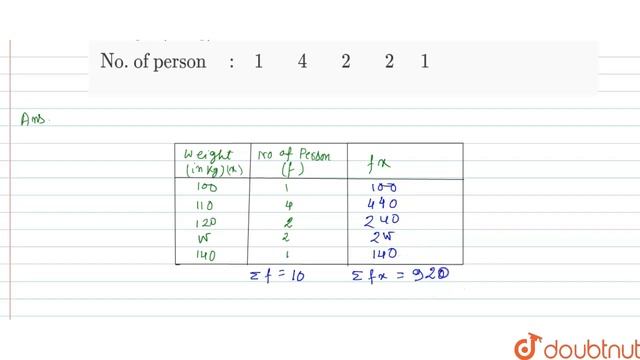 No. of person : 1 4 2 2 1
Ans.
Weight (in kg) (x) No of Person (f) fx
100 1 100
110 4 440
120 2 240
W 2 2W
140 1 140
Σf = 10 Σfx = 920
doubtnut